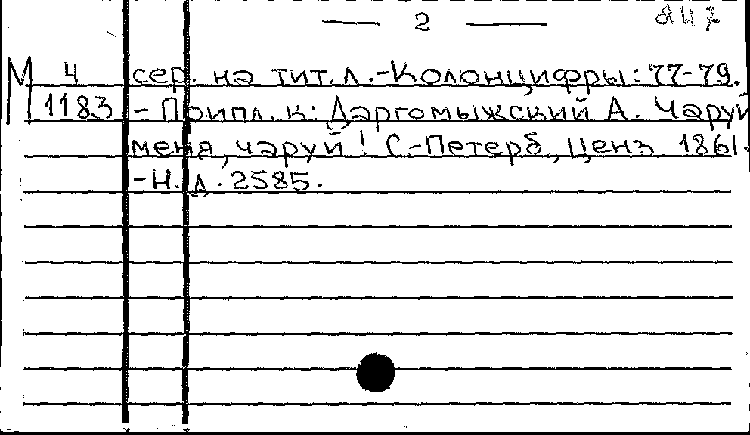 — 2 — 847
М 4 сер. на тит.л.-Колонцифры: 77-79.
1183 - Припл. к: Даргомыжский А. Чаруй
меня, чаруй! С.-Петерб., ценз 1861.
-Н.д. 2585.